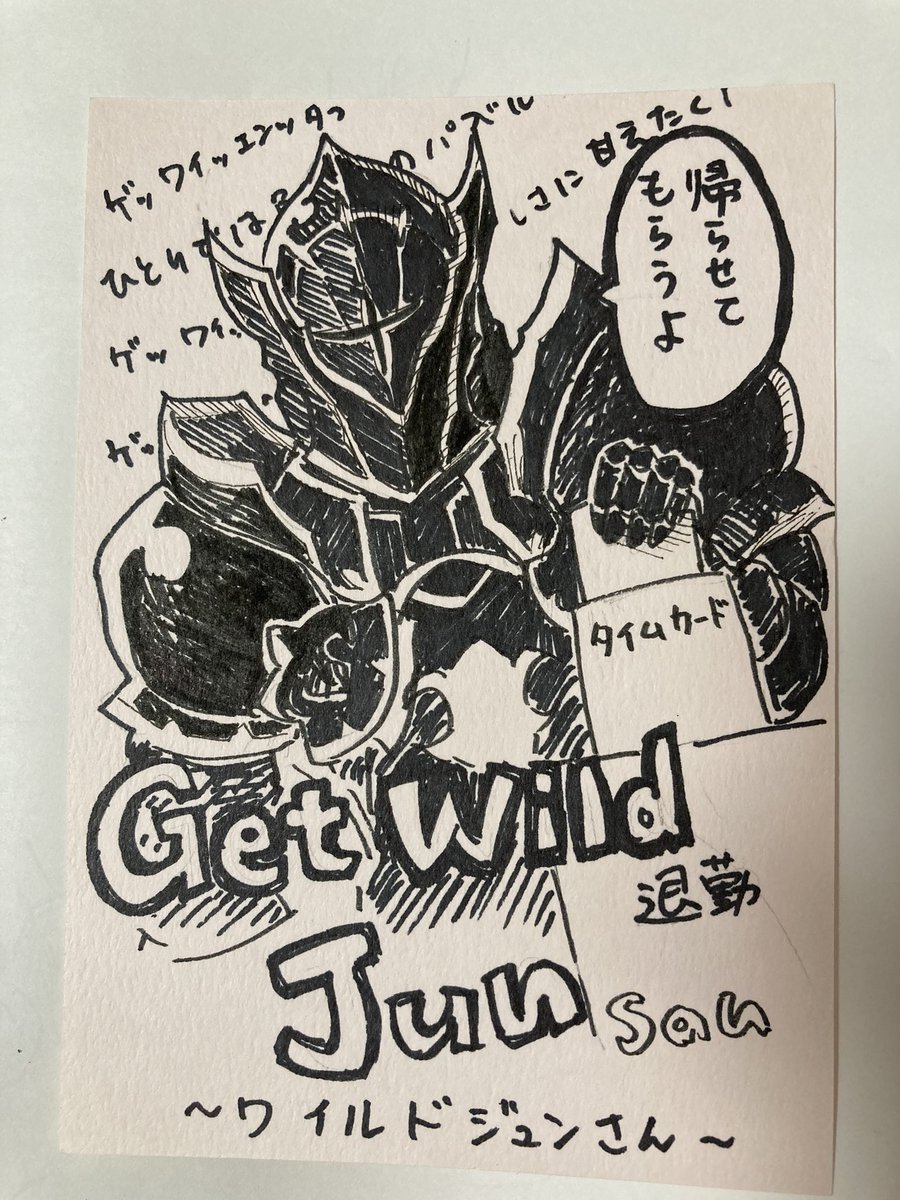 ゲッワイッエンッタフ
ひとりでは
のパズル
しさに甘えたくl
ゲッワイッ
ゲッ
帰らせて
もらうよ
タイムカード
Get Wild
退勤
Jun San
～ワイルドジュンさん～